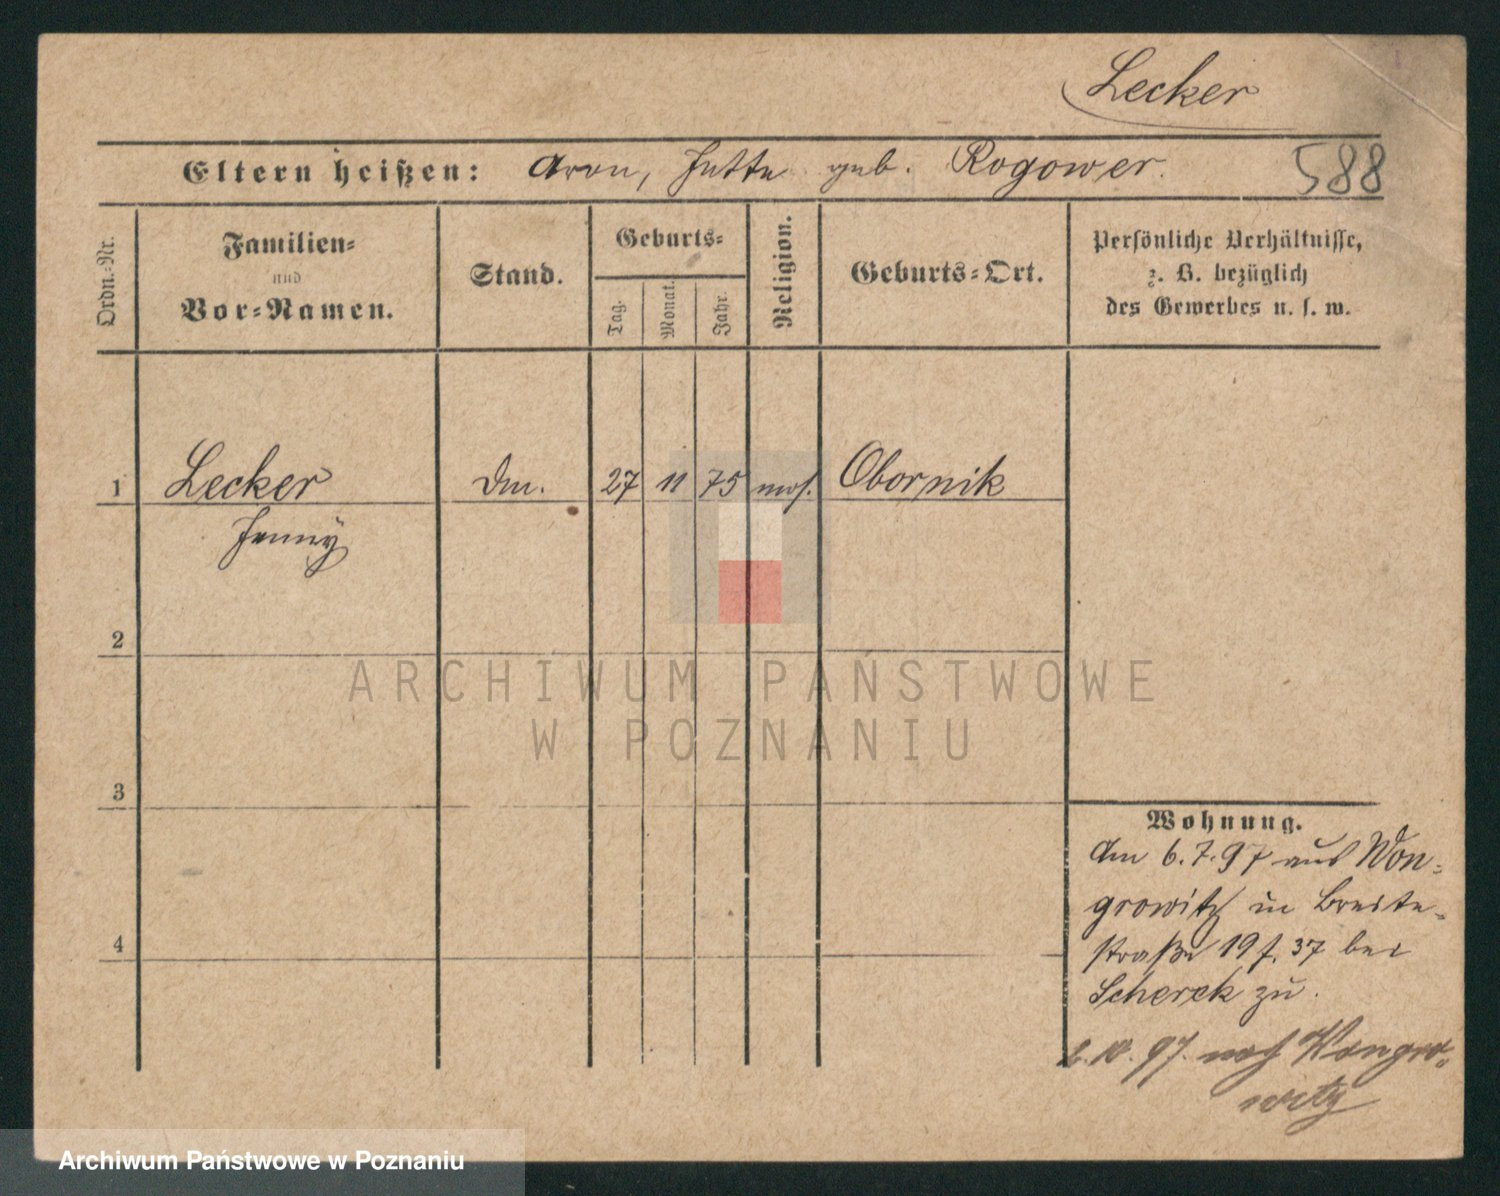 Lecker
Eltern heißen: Aron, Jette geb. Rogower.
588
Ordn.-Nr.
Familien-
und
Vor-Namen.
Stand.
Geburts-
Tag.
Monat.
Jahr.
Religion.
Geburts-Ort.
Persönliche Verhältnisse,
z. B. bezüglich
des Gewerbes u. s. w.
1 Lecker 27 11 75 mos. Obornik
Jenny
2
3
4
Wohnung.
Am 6.7.97 aus Won-
growitz in Breite-
straße 19 f. 37 bei
Scherek zu.
2.10.97. nach Wongro-
witz
ARCHIWUM PAŃSTWOWE
W POZNANIU
Archiwum Państwowe w Poznaniu